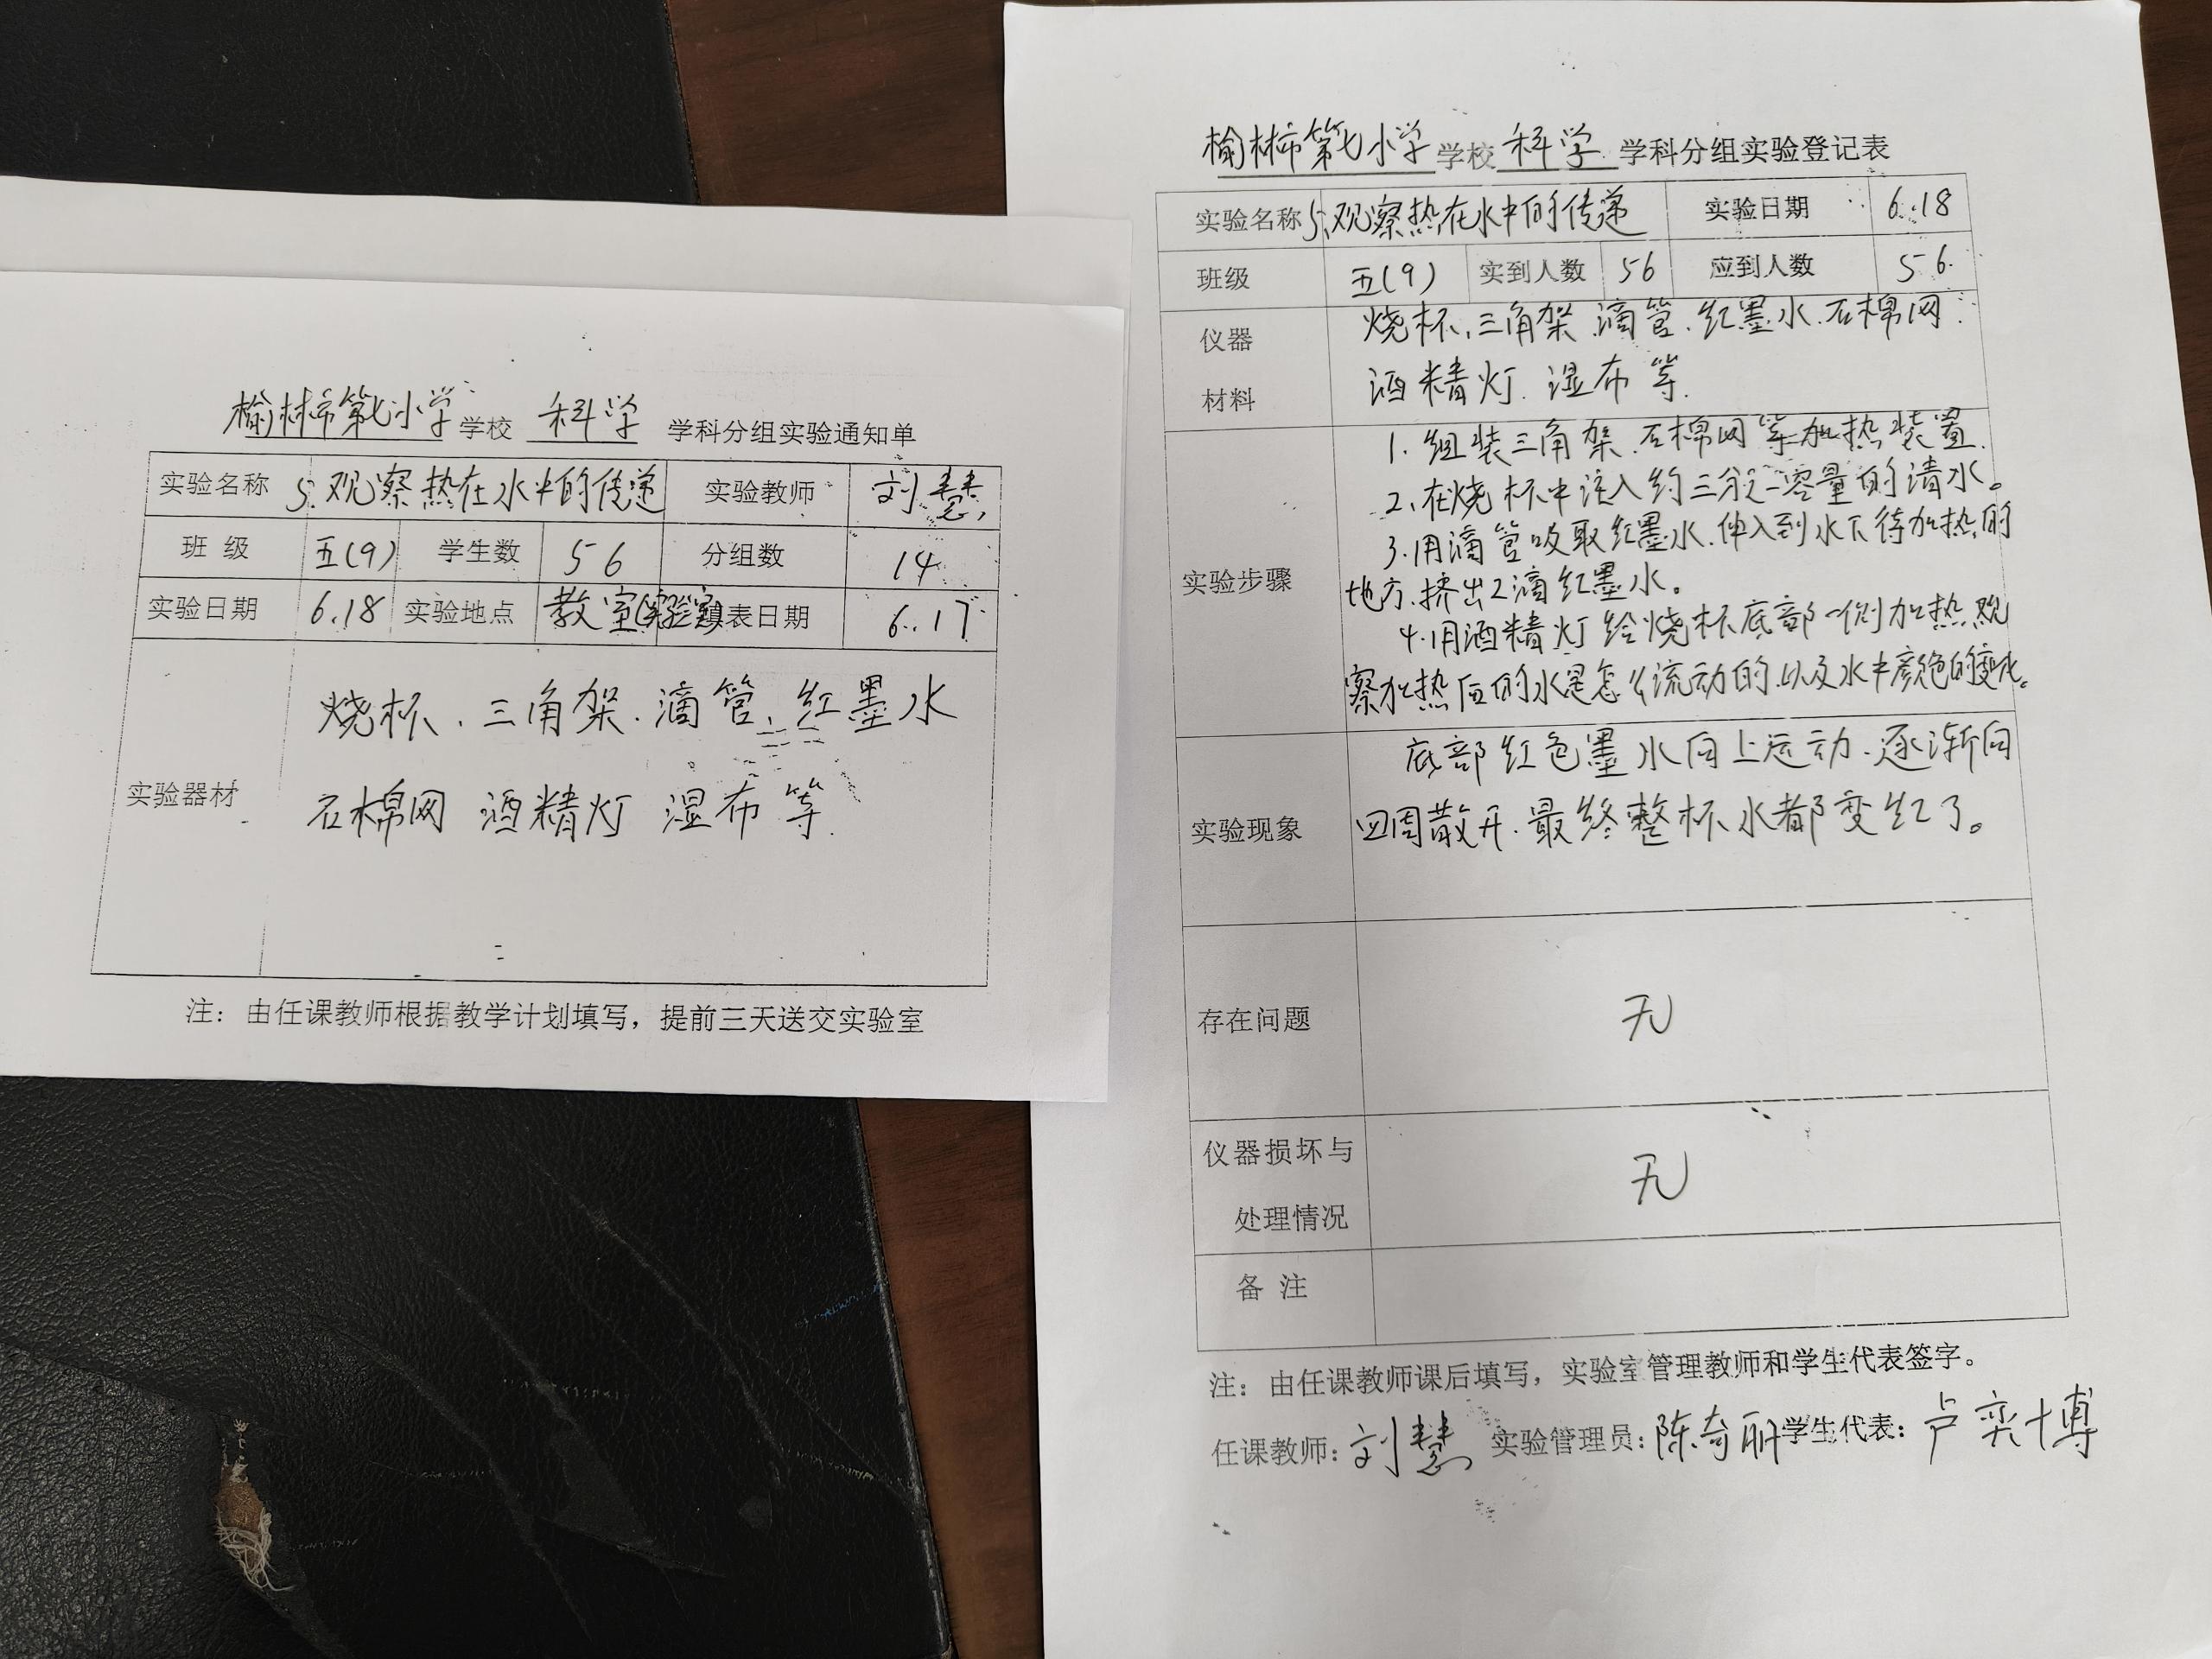 榆林市第七小学 学校 科学 学科分组实验通知单
实验名称 5.观察热在水中的传递 实验教师 刘慧
班 级 五(9) 学生数 56 分组数 14
实验日期 6.18 实验地点 教室(实验室) 填表日期 6.17
实验器材
烧杯、三角架、滴管、红墨水
石棉网 酒精灯 湿布等
注：由任课教师根据教学计划填写，提前三天送交实验室
榆林市第七小学 学校 科学 学科分组实验登记表
实验名称 5.观察热在水中的传递 实验日期 6.18
班级 五(9) 实到人数 56 应到人数 56
仪器
材料
烧杯、三角架、滴管、红墨水、石棉网
酒精灯、湿布等
实验步骤
1.组装三角架、石棉网等加热装置
2.在烧杯中注入约三分之二容量的清水。
3.用滴管吸取红墨水、伸入到水下待加热的
地方、挤出2滴红墨水。
4.用酒精灯给烧杯底部一侧加热观
察加热后的水是怎么流动的、以及水中颜色的变化。
实验现象
底部红色墨水向上运动、逐渐向
四周散开、最终整杯水都变红了。
存在问题 无
仪器损坏与
处理情况
无
备 注
注：由任课教师课后填写，实验室管理教师和学生代表签字。
任课教师：刘慧 实验管理员：陈奇丽 学生代表：卢奕博